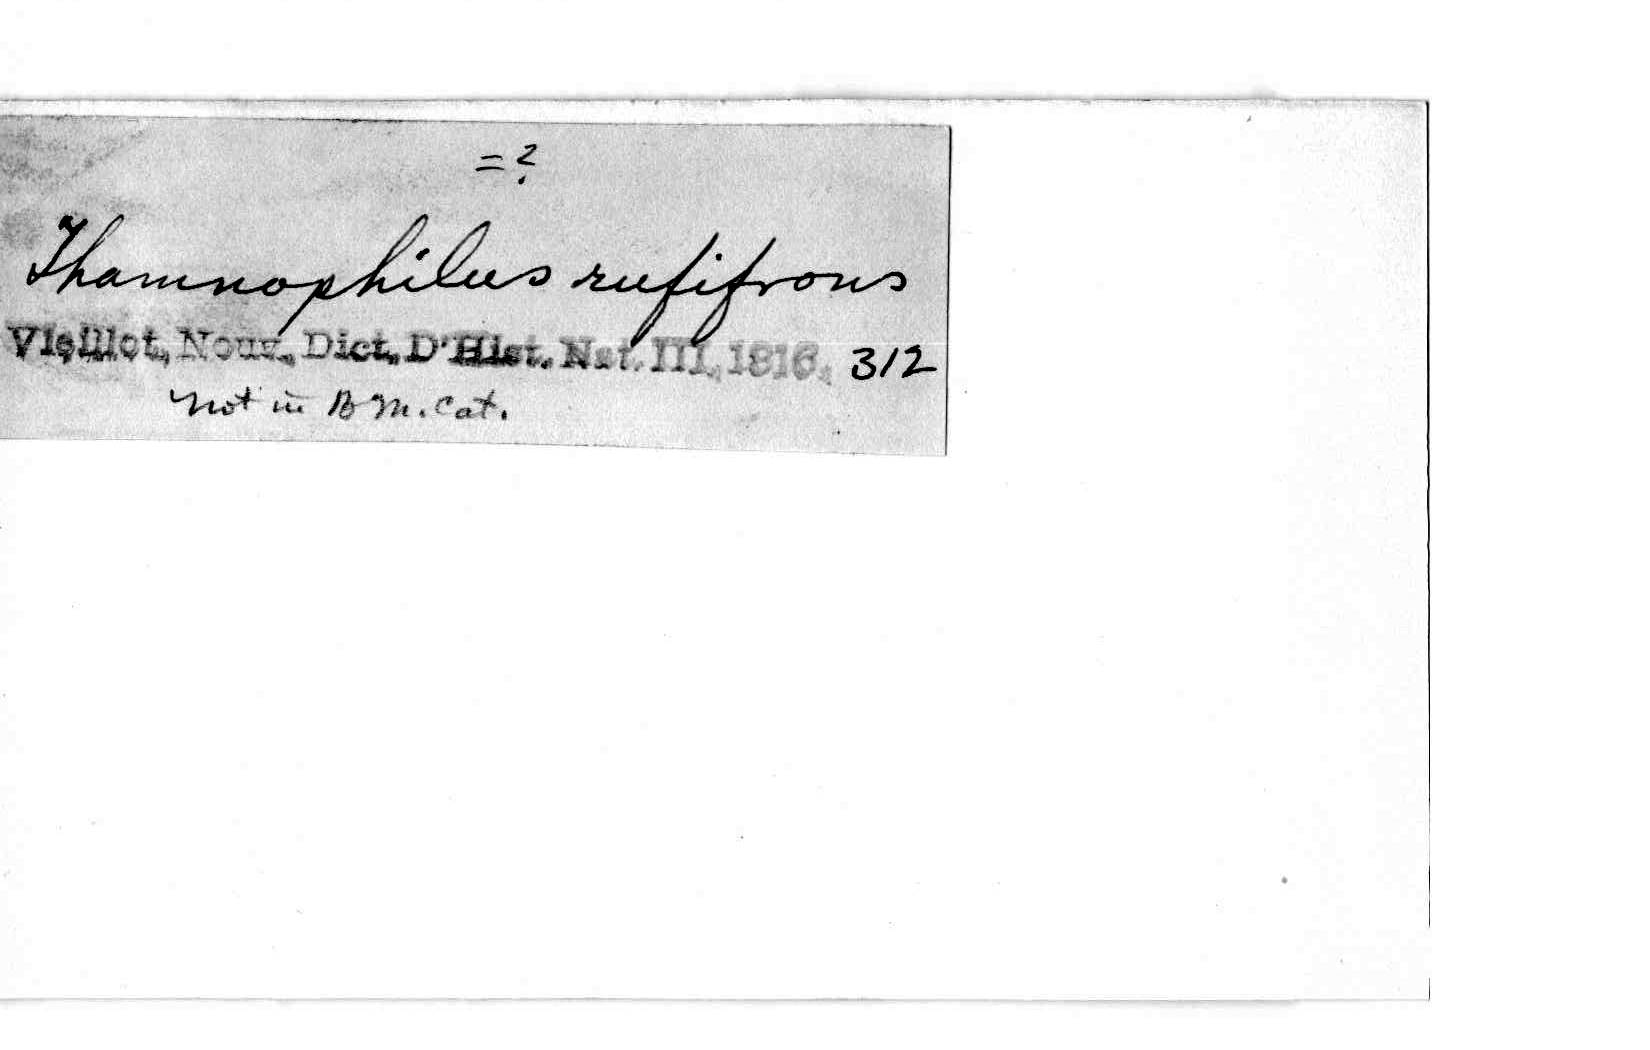 =?
Thamnophilus rufifrons
Vieillot, Nouv. Dict. D'Hist. Nat. III, 1816, 312
Not in B M. Cat.